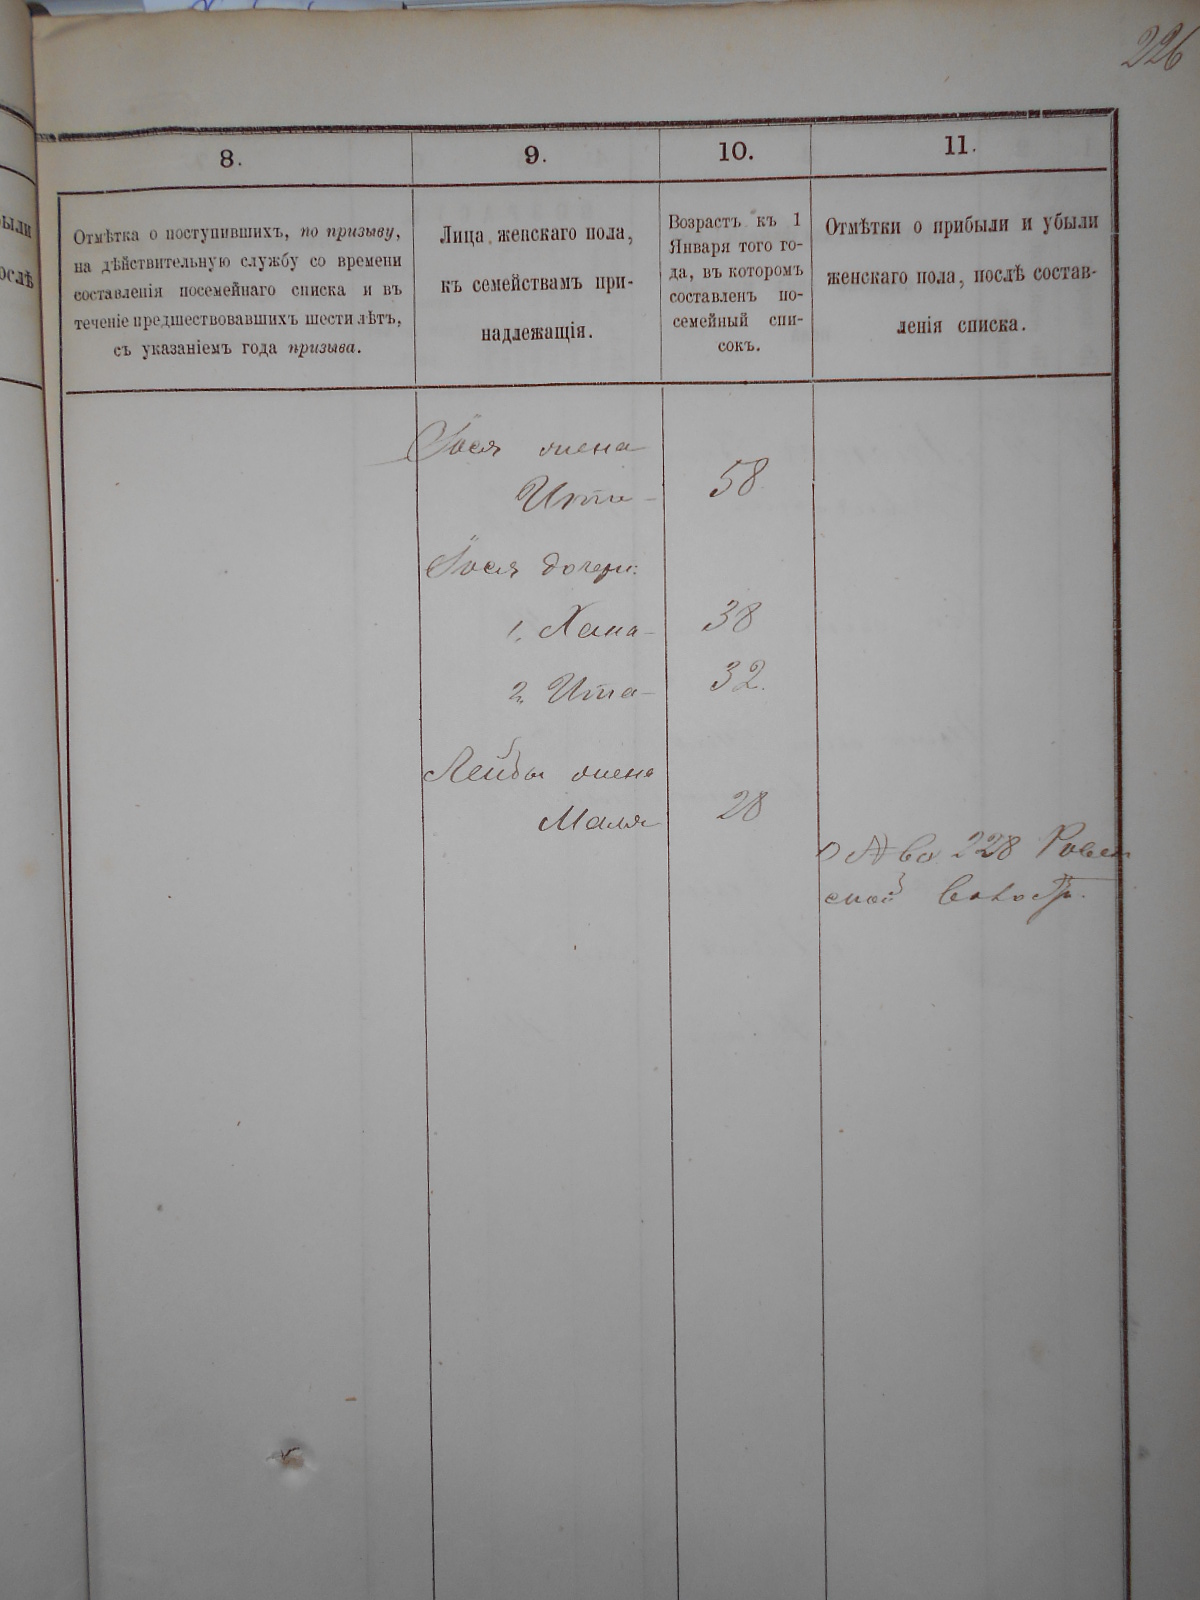 226
8.
9.
10.
11.
Отмѣтка о поступившихъ, по призыву,
на дѣйствительную службу со времени
составленія посемейнаго списка и въ
теченіе предшествовавшихъ шести лѣтъ,
съ указаніемъ года призыва.
Лица женскаго пола,
къ семействамъ при-
надлежащія.
Возрастъ къ 1
Января того го-
да, въ которомъ
составленъ по-
семейный спи-
сокъ.
Отмѣтки о прибыли и убыли
женскаго пола, послѣ состав-
ленія списка.
ыли
ослѣ
жена
58
дочери:
1. Хана 38
2. Ита 32.
Лейбы жена
Маля 28
228 Ровен
ской